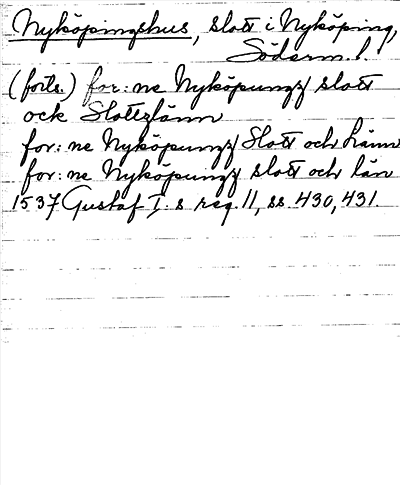 Nyköpingshus, slott i Nyköping,
Söderm. l.
(forts.) for: ne Nyköpungz slott
ock Slottzlänn
for: ne Nyköpungz Slott och Länn
for: ne Nyköpungz slott och län
1537 Gustaf I: s reg. 11, ss 430, 431.